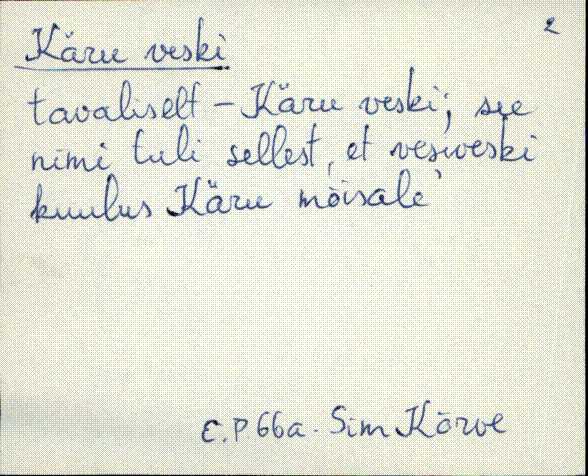 2
Käru veski
tavaliselt – Käru veski; see
nimi tuli sellest, et vesiveski
kuulus Käru mõisale
E.P 66a. Sim Kõrve